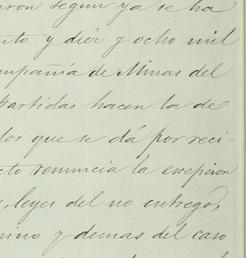 aron segun ya se ha
nto y diez y ocho mil
ompañia de Minas del
Partidas hacen la de
los que se dá por reci-
cto renuncia la escepcion
s, leyes del no entrego,
mino y demas del caso